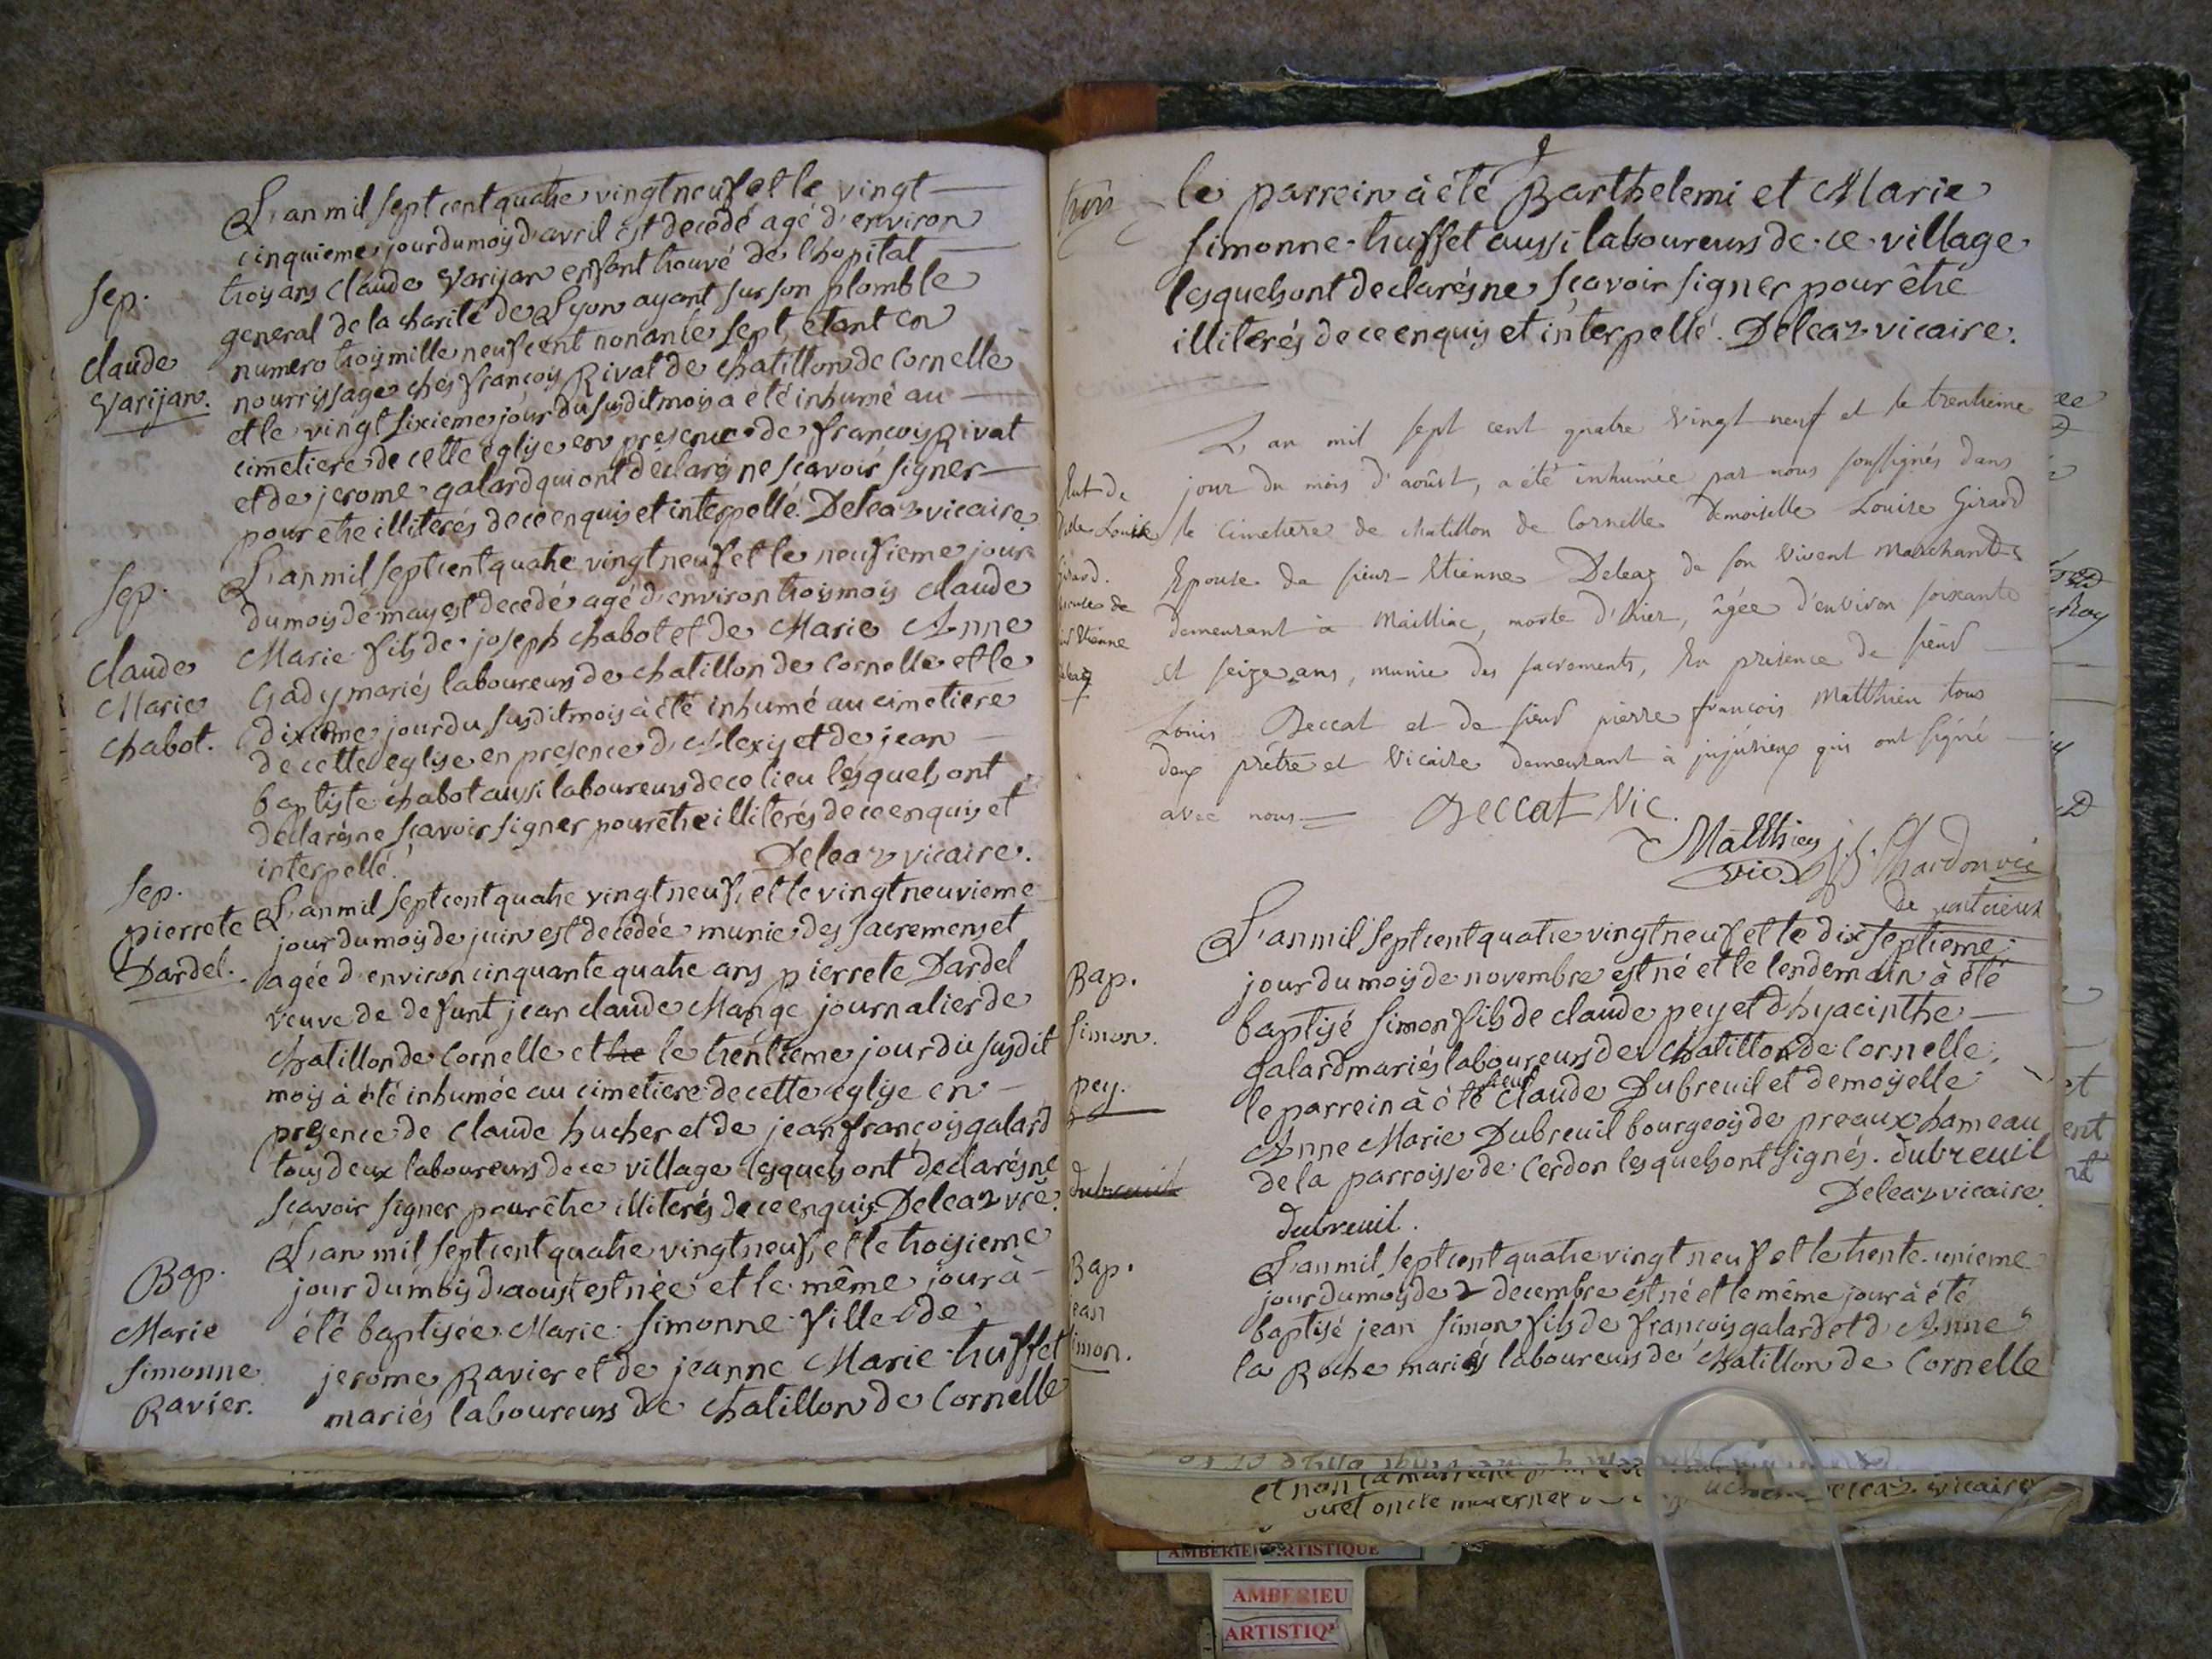 L'an mil sept cent quatre vingt neuf et le vingt
cinquieme jour du mois d'avril est decedé agé d'environ
trois ans claude Varijan enfant trouvé de l'hopital
Sep.
general de la charité de Lyon ayant sur son plomb le
claude
numero trois mille neuf cent nonante sept, etant en
Varijan.
nourrissage chés francois Rivat de chatillon de Cornelle
et le vingt sixieme jour du susdit mois a été inhumé au
cimetiere de cette eglise en presence de francois Rivat
et de jerome galard qui ont declarés ne sçavoir signer
pour etre illiterés de ce enquis et interpellé. Deleaz vicaire
Sep.
L'an mil sept cent quatre vingt neuf et le neufieme jour
du mois de may est decedé agé d'environ trois mois claude
claude
Marie fils de joseph chabot et de Marie Anne
Marie
Gady mariés laboureurs de chatillon de Cornelle et le
chabot.
dixieme jour du susdit mois à été inhumé au cimetiere
de cette eglise en presence d'Alexis et de jean
baptiste chabot aussi laboureurs de ce lieu lesquels ont
declarés ne sçavoir signer pour etre illiterés de ce enquis et
interpellé.
Deleaz vicaire.
Sep.
pierrete
L'an mil sept cent quatre vingt neuf, et le vingt neuvieme
Dardel.
jour du mois de juin est decedée munie des sacremens et
agée d'environ cinquante quatre ans pierrete Dardel
veuve de defunt jean claude Mange journalier de
chatillon de Cornelle et tre le trentieme jour du susdit
mois à été inhumée au cimetiere de cette eglise en
presence de claude hucher et de jean francois galard
tous deux laboureurs de ce village lesquels ont declarés ne
sçavoir signer pour être illiterés de ce enquis. Deleaz vre.
L'an mil sept cent quatre vingt neuf, et le troisieme
Bap.
jour du mois d'aoust est neé et le même jour à
Marie
été baptisée Marie Simonne fille de
Simonne
jerome Ravier et de jeanne Marie truffet
Ravier.
mariés laboureurs de chatillon de Cornelle
trois
le parrein à été Barthelemi et Marie
Simonne truffet aussi laboureurs de ce village
lesquels ont declarés ne sçavoir signer pour être
illiterés de ce enquis et interpellé. Deleaz vicaire.
L'an mil sept cent quatre vingt neuf et le trentieme
jour du mois d'août, a été inhumée par nous soussignés dans
Ent de
Delle Louise
le Cimetiere de chatillon de Cornelle Demoiselle Louise Girard
Girard.
Epouse de sieur Etienne Deleaz de son vivent Marchand
Etienne
demeurant à Mailliac, morte d'hier, âgée d'environ soixante
Deleaz
et seize ans, munie des sacrements, En présence de sieur
Louis Beccat et de sieur pierre francois Matthieu tous
deux prêtre et Vicaire demeurant à jujurieux qui ont signé
avec nous
Beccat Vic.
Matthieu
vic
Chardon vic
de
L'an mil sept cent quatre vingt neuf et le dix septieme
Bap.
jour du mois de novembre est né et le lendemain à été
Simon.
baptisé Simon fils de claude pey et d'hyacinthe
galard mariés laboureurs de chatillon de Cornelle.
pey.
le parrein à été sieur claude Dubreuil et demoiselle
Anne Marie Dubreuil bourgeois de preaux hameau
dubreuil
de la parroisse de Cerdon lesquels ont signés. dubreuil
Deleaz vicaire.
dubreuil.
L'an mil sept cent quatre vingt neuf et le trente-unieme
Bap.
jour du mois de decembre est né et le même jour à été
jean
baptisé jean Simon fils de francois galard et d'Anne
Simon.
la Roche mariés laboureurs de chatillon de Cornelle
Deleaz vicaire
AMBERIEU ARTISTIQUE
AMBERIEU
ARTISTIQ